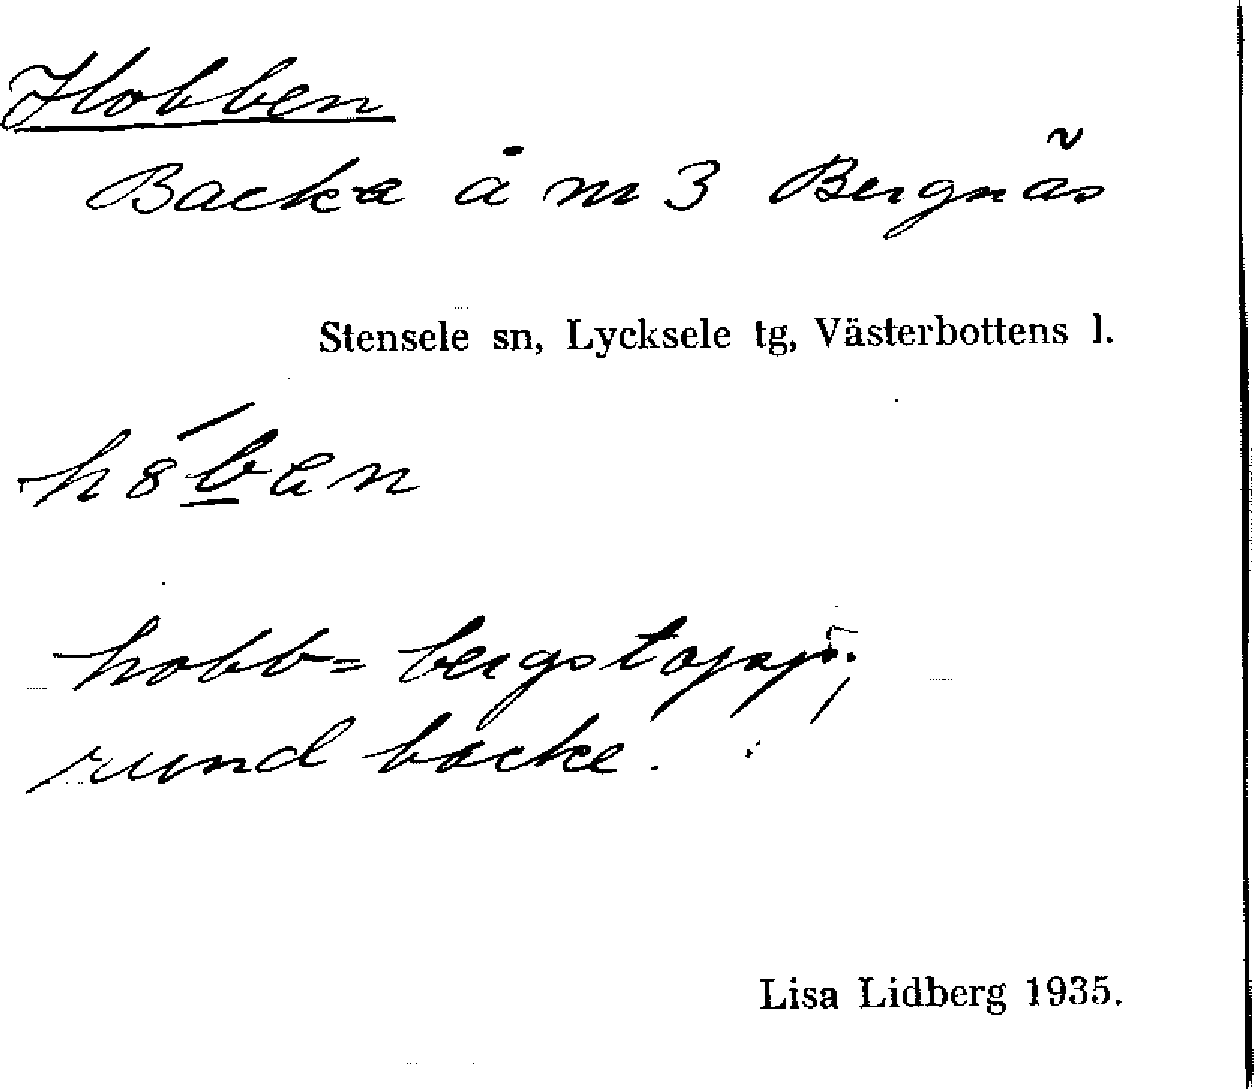 Hobben
Backe å m 3 Bergnäs
Stensele sn, Lycksele tg, Västerbottens l.
hȣ́b̲an
hobb = bergstopp;
rund backe.
Lisa Lidberg 1935.